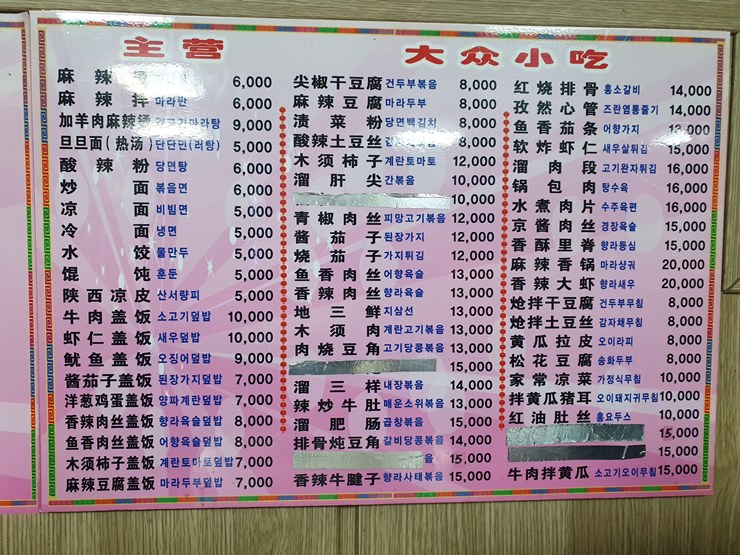 主营
麻辣
麻辣拌 마라반 6,000
加羊肉麻辣烫 양고기마라탕 9,000
旦旦面(热汤) 단단면(러탕) 5,000
酸辣粉 당면탕 6,000
炒面 볶음면 6,000
凉面 비빔면 5,000
冷面 냉면 5,000
水饺 물만두 5,000
馄饨 훈둔 5,000
陕西凉皮 산서량피 5,000
牛肉盖饭 소고기덮밥 10,000
虾仁盖饭 새우덮밥 10,000
鱿鱼盖饭 오징어덮밥 9,000
酱茄子盖饭 된장가지덮밥 7,000
洋葱鸡蛋盖饭 양파계란덮밥 7,000
香辣肉丝盖饭 향라육슬덮밥 8,000
鱼香肉丝盖饭 어향육슬덮밥 8,000
木须柿子盖饭 계란토마토덮밥 7,000
麻辣豆腐盖饭 마라두부덮밥 7,000
大众小吃
尖椒干豆腐 건두부볶음 8,000
麻辣豆腐 마라두부 8,000
渍菜粉 당면백김치 8,000
酸辣土豆丝 8,000
木须柿子 계란토마토 12,000
溜肝尖 간볶음
10,000
青椒肉丝 피망고기볶음 12,000
酱茄子 된장가지 12,000
烧茄子 가지튀김 12,000
鱼香肉丝 어향육슬 13,000
香辣肉丝 향라육슬 13,000
地三鲜 지삼선 13,000
木须肉 계란고기볶음 13,000
肉烧豆角 고기당콩볶음 13,000
15,000
溜三样 내장볶음 14,000
辣炒牛肚 매운소위볶음 13,000
溜肥肠 곱창볶음 15,000
排骨炖豆角 갈비당콩볶음 14,000
음 15,000
香辣牛腱子 향라사태볶음 15,000
红烧排骨 홍소갈비 14,000
孜然心管 즈란염통줄기 14,000
鱼香茄条 어향가지
软炸虾仁 새우살튀김 15,000
溜肉段 고기완자튀김 16,000
锅包肉 탕수육 16,000
水煮肉片 수주육편 16,000
京酱肉丝 경장육슬 15,000
香酥里脊 향라등심 15,000
麻辣香锅 마라샹궈 20,000
香辣大虾 향라새우 20,000
炝拌干豆腐 건두부무침 8,000
炝拌土豆丝 감자채무침 8,000
黄瓜拉皮 오이라피 8,000
松花豆腐 송화두부 8,000
家常凉菜 가정식무침 10,000
拌黄瓜猪耳 오이돼지귀무침 10,000
红油肚丝 홍요두스 10,000
15,000
15,000
牛肉拌黄瓜 소고기오이무침 15,000